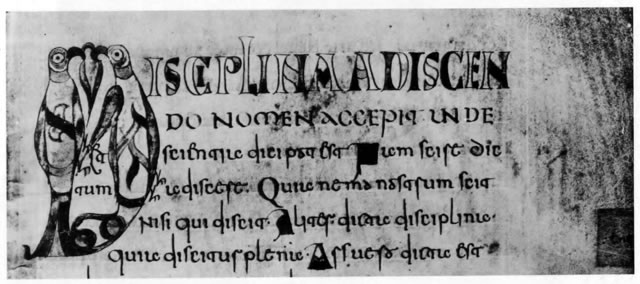 DISCIPLINA A DISCEN
DO NOMEN ACCEPIT UNDE
et scientia dici potest Nam scire dic
tum a discere. Quia nemo nostrum scit
nisi qui discit. Aliter dicta disciplina.
quia discitur plena. Ars uero dicta est